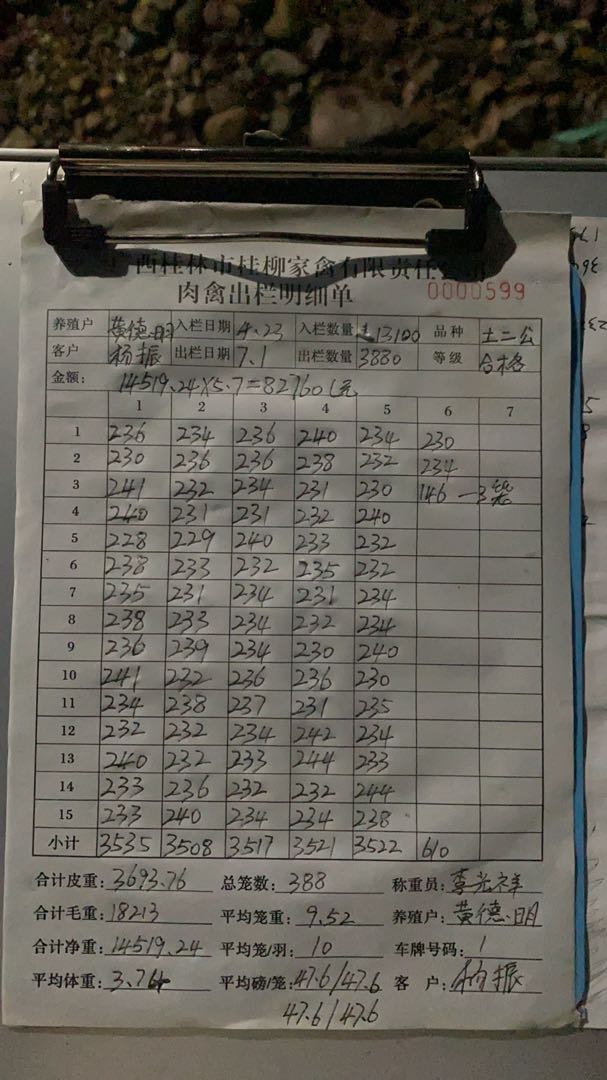 西桂林市桂柳家禽有限责任公司
肉禽出栏明细单 0000599
养殖户 黄德明 入栏日期 4.23 入栏数量 13100 品种 土二公
客户 杨振 出栏日期 7.1 出栏数量 3880 等级 合格
金额: 14519.24×5.7=82760元
1 2 3 4 5 6 7
1 236 234 236 240 234 230
2 230 236 236 238 232 234
3 241 232 234 231 230 146 —3笼
4 240 231 231 232 240
5 228 229 240 233 232
6 238 233 232 235 232
7 235 231 234 231 234
8 238 233 234 232 234
9 236 239 234 230 240
10 241 232 236 236 230
11 234 238 237 231 235
12 232 232 234 242 234
13 240 232 233 244 233
14 233 236 232 232 244
15 233 240 234 234 238
小计 3535 3508 3517 3521 3522 610
合计皮重: 3693.76 总笼数: 388 称重员: 李光祥
合计毛重: 18213 平均笼重: 9.52 养殖户: 黄德明
合计净重: 14519.24 平均笼/羽: 10 车牌号码: 1
平均体重: 3.74 平均磅/笼: 47.6/47.6 客户: 杨振
47.6/47.6